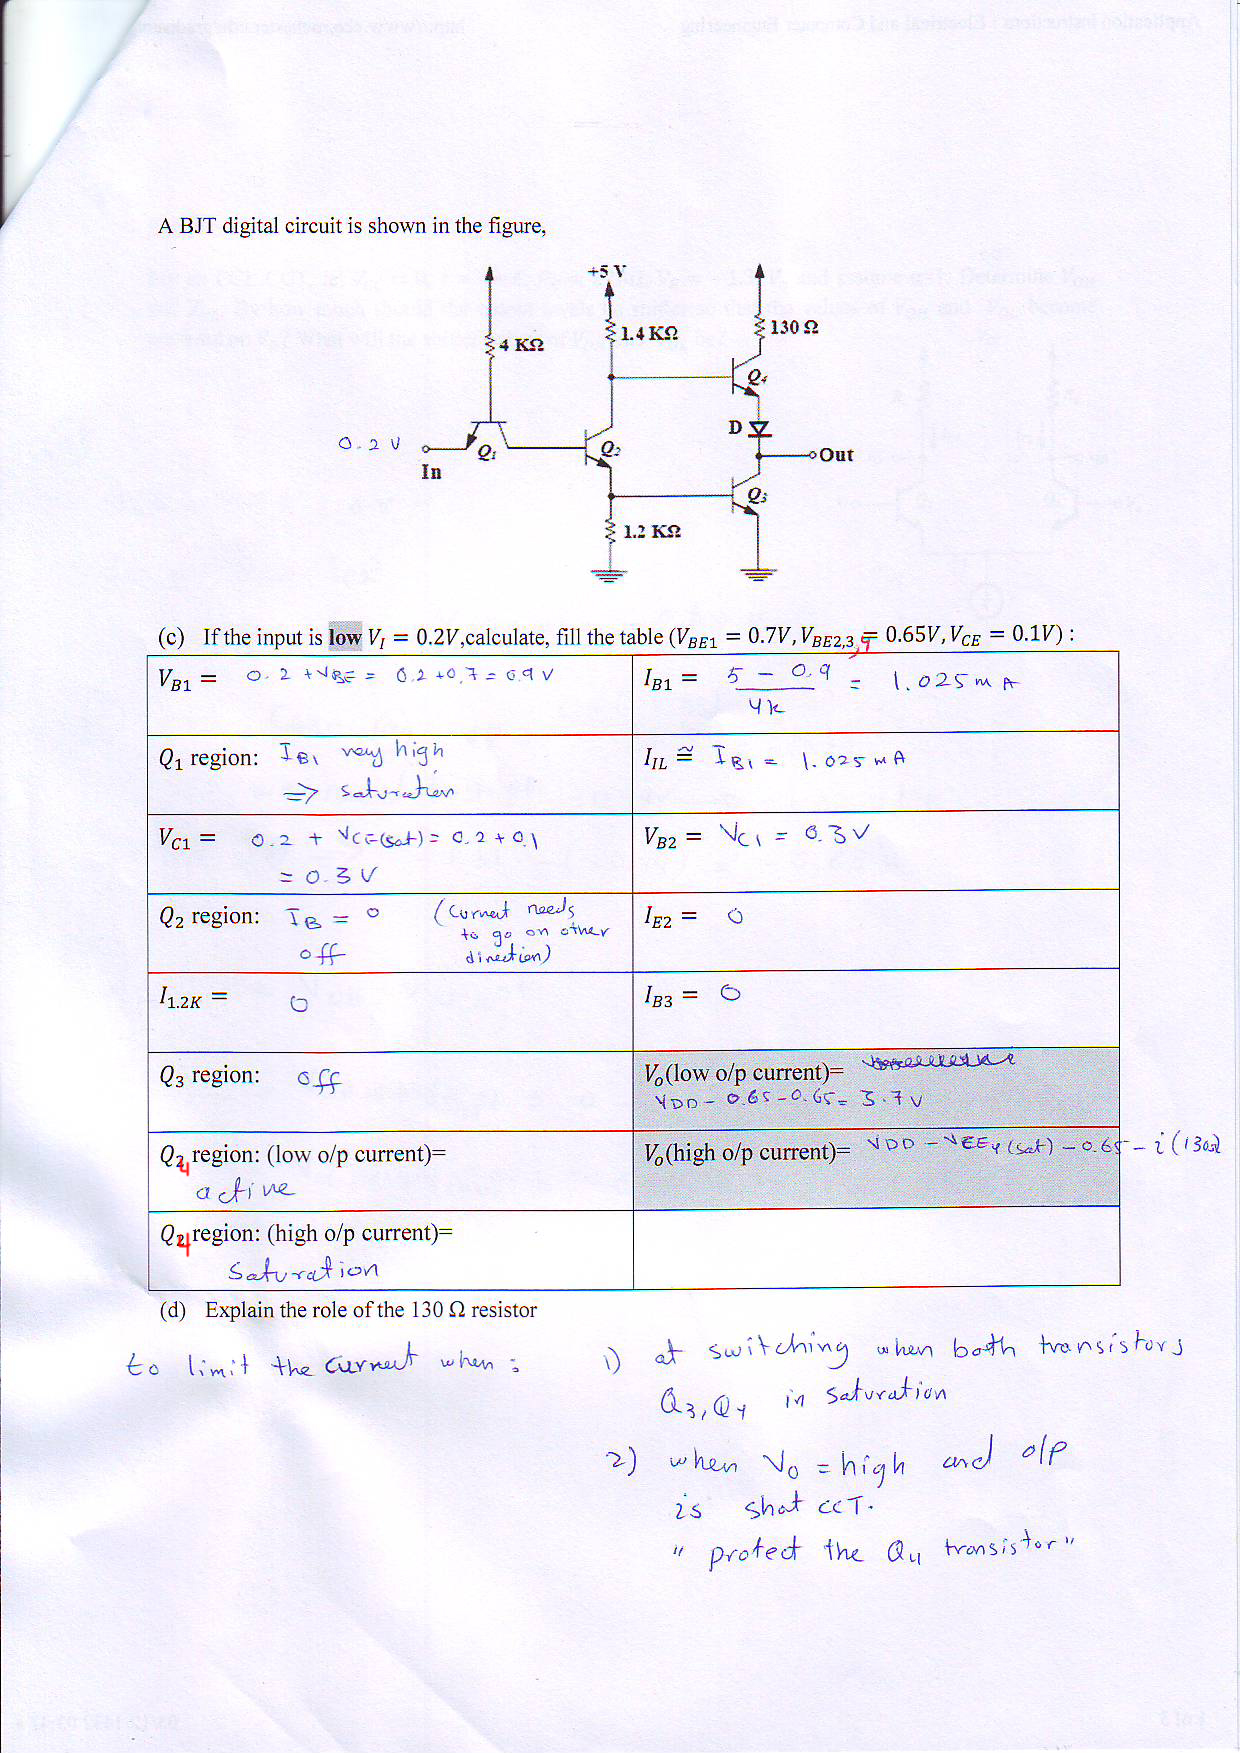 A BJT digital circuit is shown in the figure,
+5 V
4 KΩ
1.4 KΩ
130 Ω
Q4
D
0.2 V
In
Q1
Q2
Out
Q3
1.2 KΩ
(c) If the input is low V_I = 0.2V,calculate, fill the table (V_BE1 = 0.7V, V_BE2,3,4 = 0.65V, V_CE = 0.1V) :
V_B1 = 0.2 + V_BE = 0.2 + 0.7 = 0.9 V
I_B1 = 5 - 0.9 / 4k = 1.025 mA
Q1 region: I_B1 very high
⇒ saturation
I_IL ≅ I_B1 = 1.025 mA
V_C1 = 0.2 + V_CE(sat) = 0.2 + 0.1
= 0.3 V
V_B2 = V_C1 = 0.3 V
Q2 region: I_B = 0 (Current needs
to go on other
off direction)
I_E2 = 0
I_1.2K = 0
I_B3 = 0
Q3 region: off
V_o(low o/p current)=
V_DD - 0.65 - 0.65 = 3.7 V
Q4 region: (low o/p current)=
active
V_o(high o/p current)= V_DD - V_EE4(sat) - 0.65 - i(130Ω
Q4 region: (high o/p current)=
Saturation
(d) Explain the role of the 130 Ω resistor
to limit the current when : 1) at switching when both transistors
Q3, Q4 in saturation
2) when Vo = high and o/p
is shot ccT.
" protect the Q4 transistor "